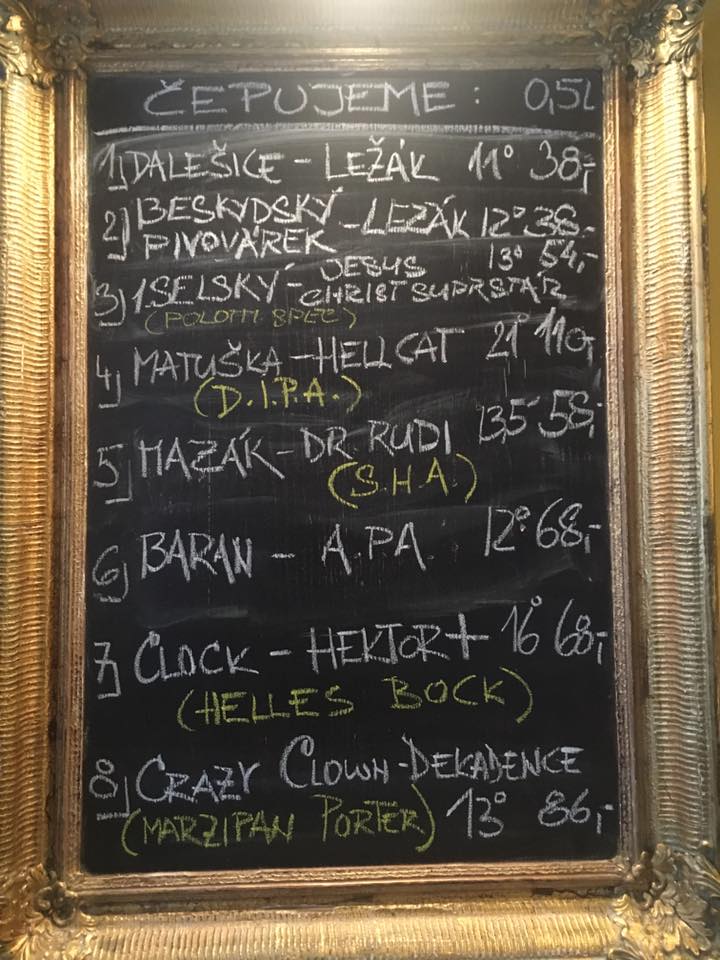 ČEPUJEME: 0,5l
1) DALEŠICE - LEŽÁK 11° 38,-
2) BESKYDSKÝ PIVOVÁREK - LEZÁK 12° 38,-
3) 1.SELSKÝ - JESUS CHRIST SUPRSTÁR 13° 54,-
(POLOTM. SPEC)
4) MATUŠKA - HELLCAT 21° 110,-
(D.I.P.A.)
5) MAZÁK - DR. RUDI 13,5° 58,-
(S.H.A.)
6) BARAN - A.P.A. 12° 68,-
7) CLOCK - HEKTOR + 16° 68,-
(HELLES BOCK)
8) CRAZY CLOWN - DEKADENCE
(MARZIPAN PORTER) 13° 86,-